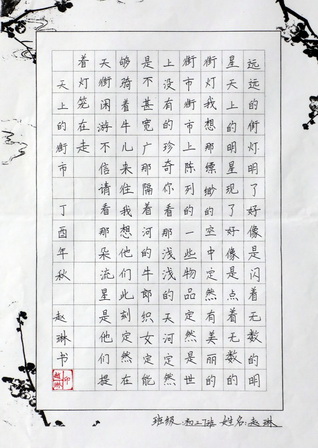 远远的街灯明了好像是闪着无数的明
星天上的明星现了好像是点着无数的
街灯我想那缥缈的空中定然有美丽的
街市街市上陈列的一些物品定然是世
上没有的珍奇你看那浅浅的天河定然
是不甚宽广那隔着河的牛郎织女定能
够骑着牛儿来往我想他们此刻定然在
天街闲游不信请看那朵流星是他们提
着灯笼在走
天上的街市 丁酉年秋 赵琳书
班级 初二7班 姓名:赵琳